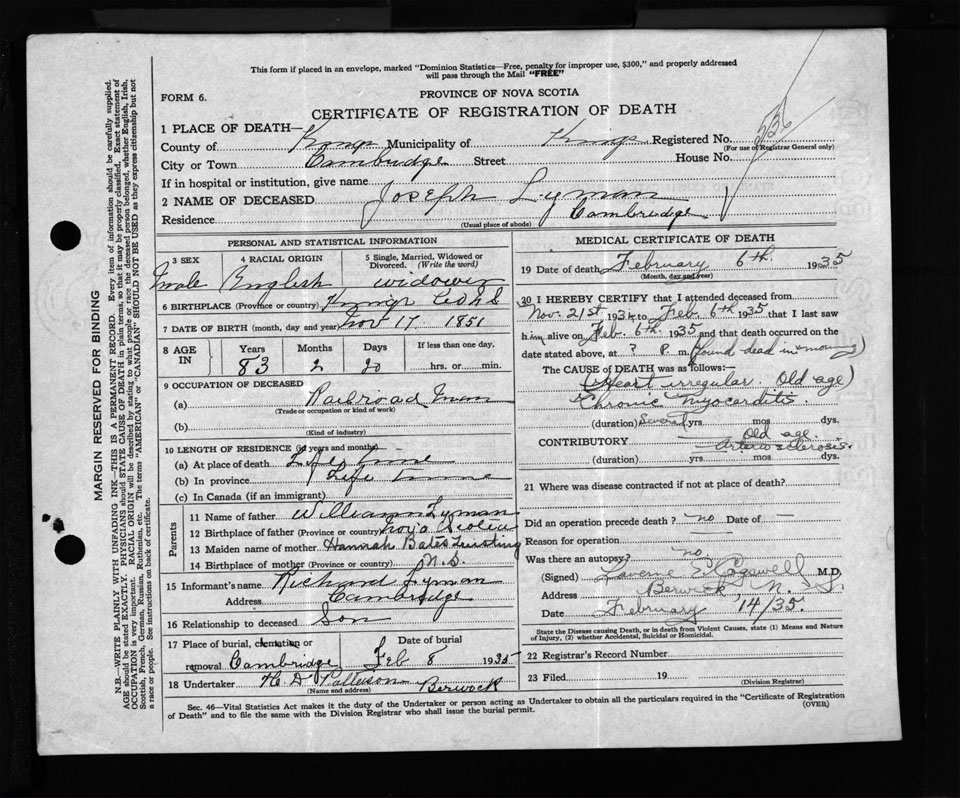 This form if placed in an envelope, marked "Dominion Statistics—Free, penalty for improper use, $300," and properly addressed
will pass through the Mail "FREE"
FORM 6.
PROVINCE OF NOVA SCOTIA
CERTIFICATE OF REGISTRATION OF DEATH
1 PLACE OF DEATH—
County of Kings Municipality of Kings Registered No. 236
(For use of Registrar General only)
City or Town Cambridge Street House No.
If in hospital or institution, give name
2 NAME OF DECEASED Joseph Lyman
Residence Cambridge
(Usual place of abode)
PERSONAL AND STATISTICAL INFORMATION
3 SEX 4 RACIAL ORIGIN 5 Single, Married, Widowed or Divorced. (Write the word)
Male English widower
6 BIRTHPLACE (Province or country) Kings Co N S
7 DATE OF BIRTH (month, day and year) Nov 17 1851
8 AGE IN Years Months Days If less than one day.
83 2 20 hrs. or min.
9 OCCUPATION OF DECEASED
(a) Railroad Man
(Trade or occupation or kind of work)
(b)
(Kind of industry)
10 LENGTH OF RESIDENCE (in years and months)
(a) At place of death Life time
(b) In province Life time
(c) In Canada (if an immigrant)
Parents
11 Name of father William Lyman
12 Birthplace of father (Province or country) Nova Scotia
13 Maiden name of mother Hannah Bates
14 Birthplace of mother (Province or country) N.S.
15 Informant's name Richard Lyman
Address Cambridge
16 Relationship to deceased Son
17 Place of burial, cremation or removal Cambridge Date of burial Feb 8 1935
18 Undertaker H. D. Patterson Berwick
(Name and address)
MEDICAL CERTIFICATE OF DEATH
19 Date of death February 6th. 1935
(Month, day and year)
20 I HEREBY CERTIFY that I attended deceased from
Nov. 21st 1934 to Feb. 6th 1935 that I last saw
him alive on Feb. 6th 1935 and that death occurred on the
date stated above, at ? P. m. (found dead in morning)
The CAUSE of DEATH was as follows:—
(Heart irregular. Old age)
Chronic Myocarditis.
(duration) Several yrs. mos. dys.
CONTRIBUTORY Old age.
Arteriosclerosis.
(duration) yrs. mos. dys.
21 Where was disease contracted if not at place of death?
Did an operation precede death? no Date of —
Reason for operation —
Was there an autopsy? no.
(Signed) Cogswell M.D.
Address Berwick, N.S.
Date February 14/35.
State the Disease causing Death, or in death from Violent Causes, state (1) Means and Nature
of Injury, (2) whether Accidental, Suicidal or Homicidal.
22 Registrar's Record Number
23 Filed 19
(Division Registrar)
Sec. 46—Vital Statistics Act makes it the duty of the Undertaker or person acting as Undertaker to obtain all the particulars required in the "Certificate of Registration
of Death" and to file the same with the Division Registrar who shall issue the burial permit.
(OVER)
MARGIN RESERVED FOR BINDING
N.B.—WRITE PLAINLY WITH UNFADING INK—THIS IS A PERMANENT RECORD. Every item of information should be carefully supplied.
AGE should be stated EXACTLY. PHYSICIANS should STATE CAUSE OF DEATH in plain terms, so that it may be properly classified. Exact statement of
OCCUPATION is very important. RACIAL ORIGIN will be described by stating to what people or race the deceased person belonged, whether English, Irish,
Scottish, French, German, Russian, Ruthenian, etc. The terms "AMERICAN" or "CANADIAN" SHOULD NOT BE USED as they express citizenship but not
a race or people. See instructions on back of certificate.